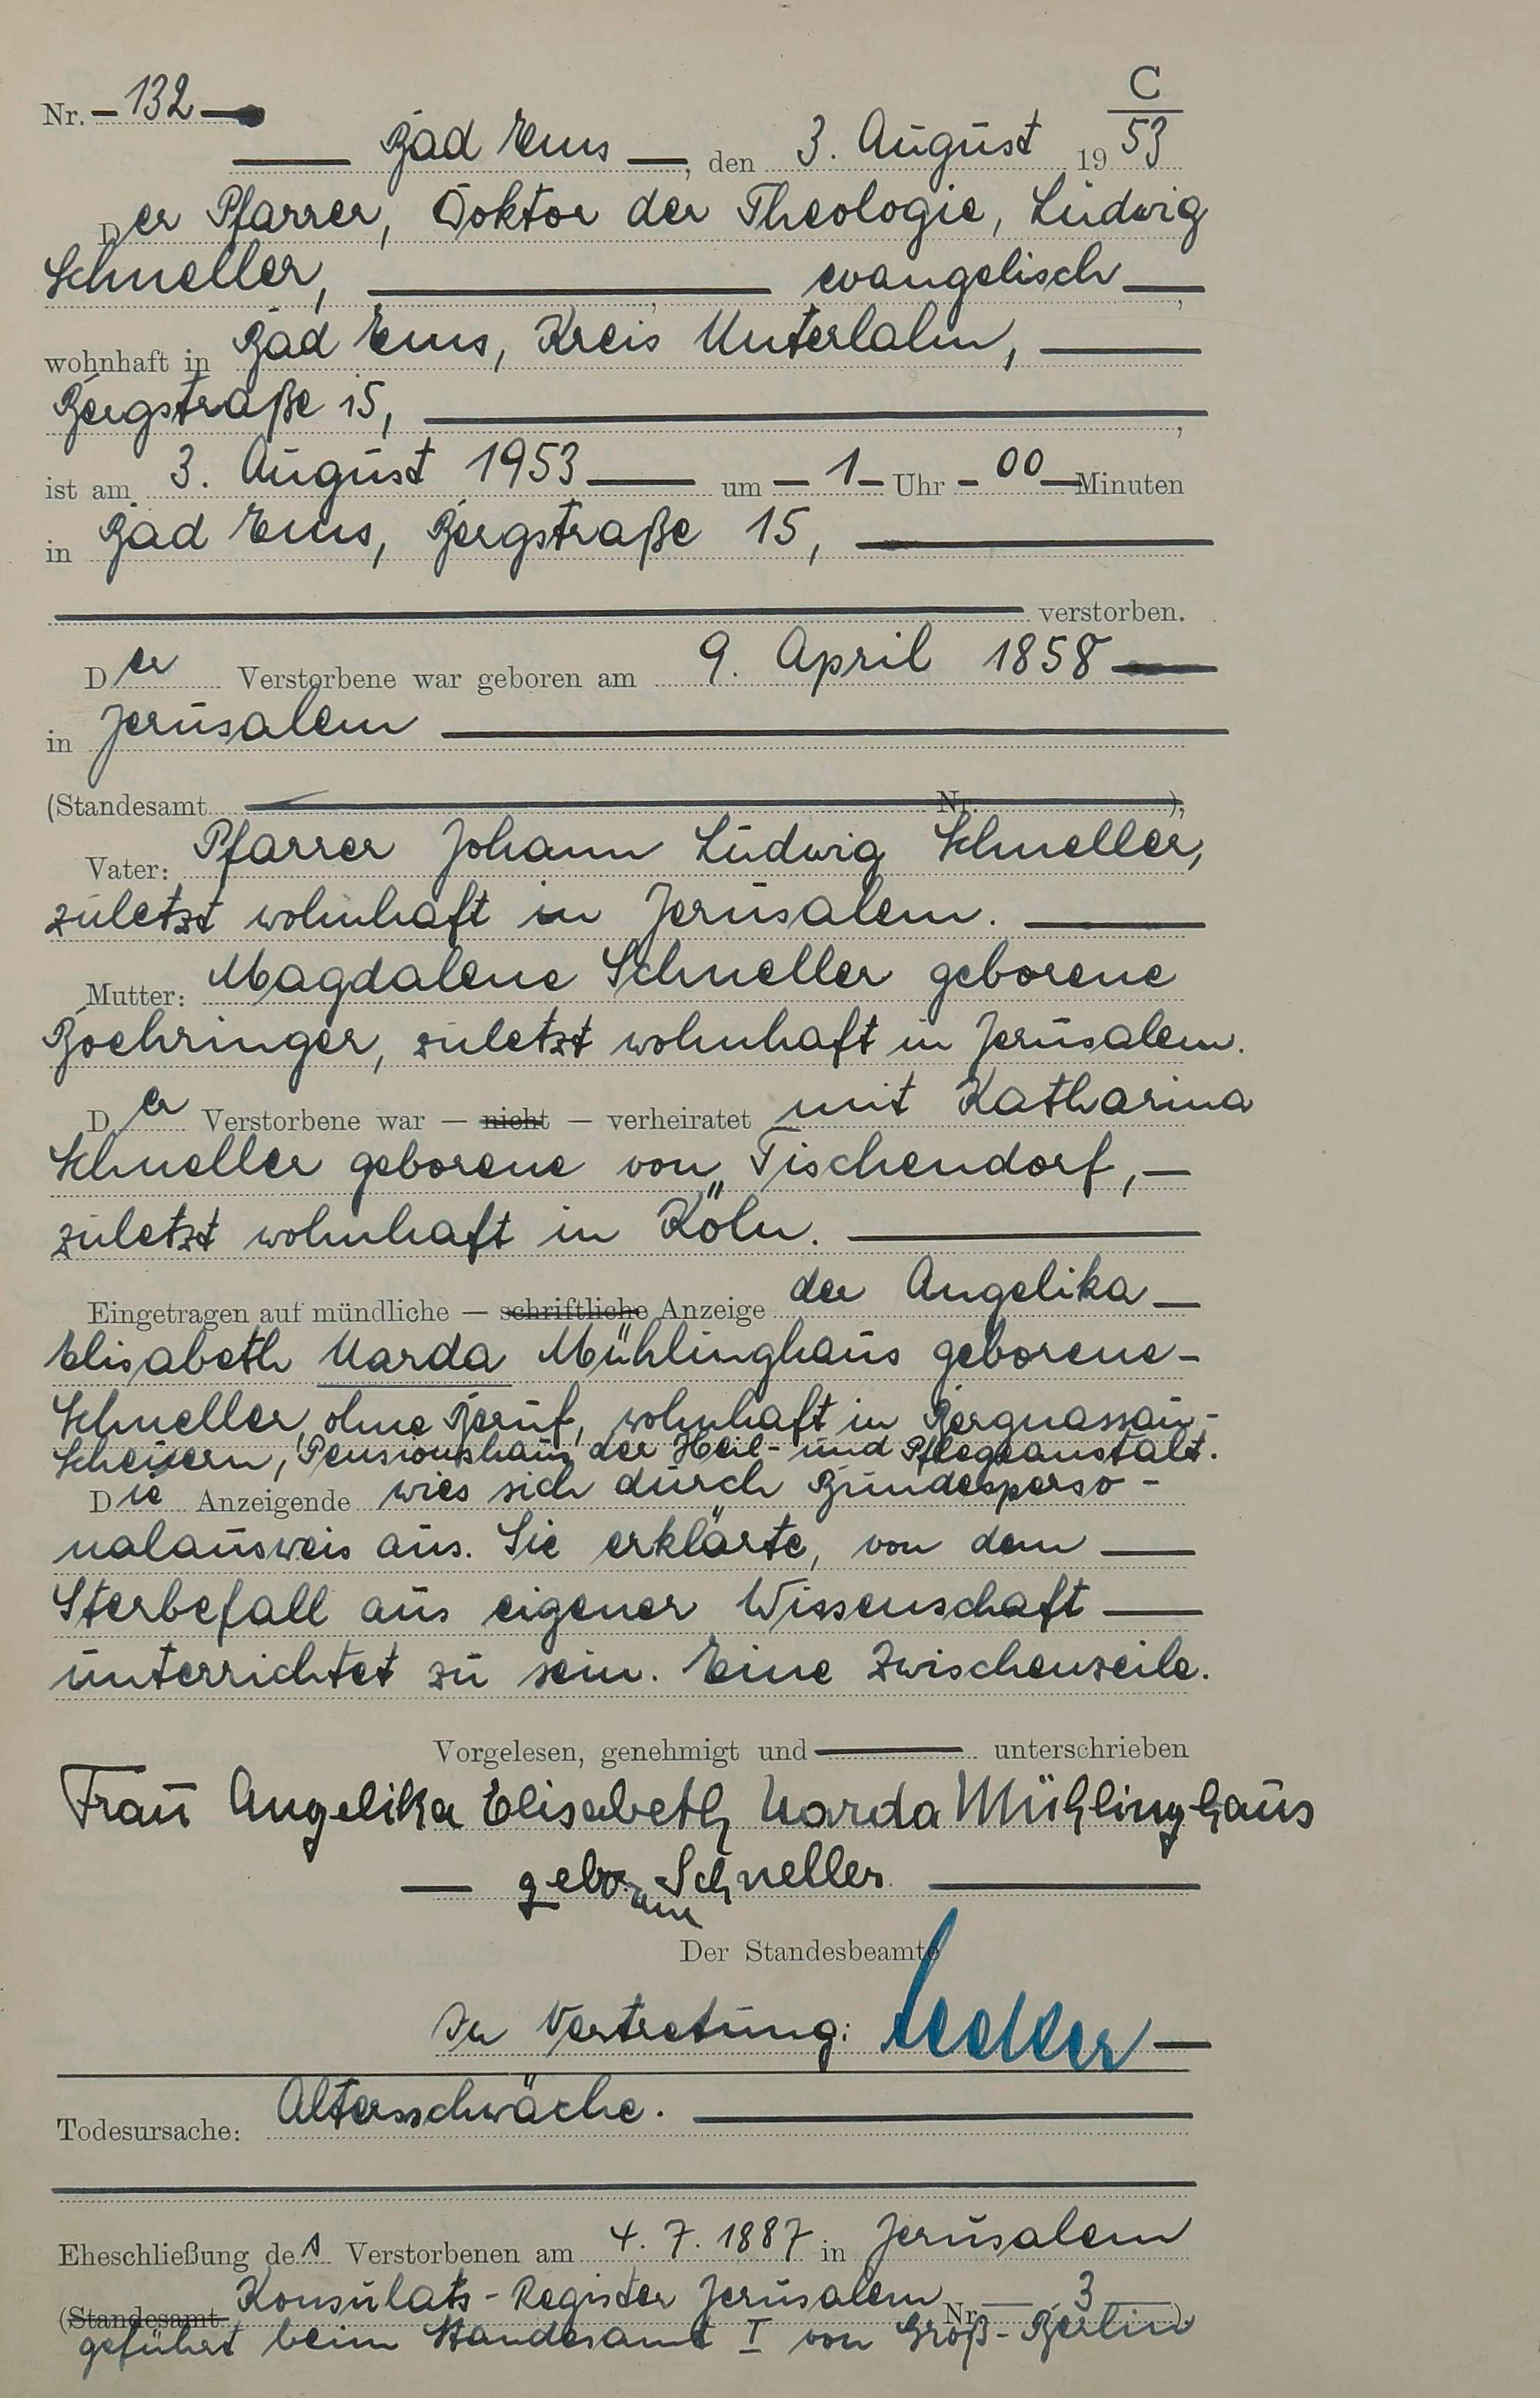 C
Nr. – 132 –
Bad Ems –, den 3. August 1953
Der Pfarrer, Doktor der Theologie, Ludwig
Schneller, evangelisch –,
wohnhaft in Bad Ems, Kreis Unterlahn,
Bergstraße 15,
ist am 3. August 1953 — um – 1 – Uhr – 00 – Minuten
in Bad Ems, Bergstraße 15,
verstorben.
Der Verstorbene war geboren am 9. April 1858
in Jerusalem
(Standesamt Nr. ),
Vater: Pfarrer Johann Ludwig Schneller,
zuletzt wohnhaft in Jerusalem.
Mutter: Magdalene Schneller geborene
Boehringer, zuletzt wohnhaft in Jerusalem.
Der Verstorbene war — nicht — verheiratet mit Katharina
Schneller geborene von Tischendorf, –
zuletzt wohnhaft in Köln.
Eingetragen auf mündliche — schriftliche Anzeige der Angelika –
Elisabeth Warda Mühlinghaus geborene –
Schneller, ohne Beruf, wohnhaft in Bergnassau-
Scheuern, Pensionshaus der Heil- und Pflegeanstalt.
Die Anzeigende wies sich durch Bundesperso-
nalausweis aus. Sie erklärte, von dem —
Sterbefall aus eigener Wissenschaft —
unterrichtet zu sein. Eine Zwischenzeile.
Vorgelesen, genehmigt und — unterschrieben
Frau Angelika Elisabeth Warda Mühlinghaus
— geborene Schneller —
Der Standesbeamte
In Vertretung:
Todesursache: Altersschwäche.
Eheschließung des Verstorbenen am 4. 7. 1887 in Jerusalem
(Standesamt Konsulats-Register Jerusalem Nr. — 3 —).
geführt beim Standesamt I von Groß-Berlin